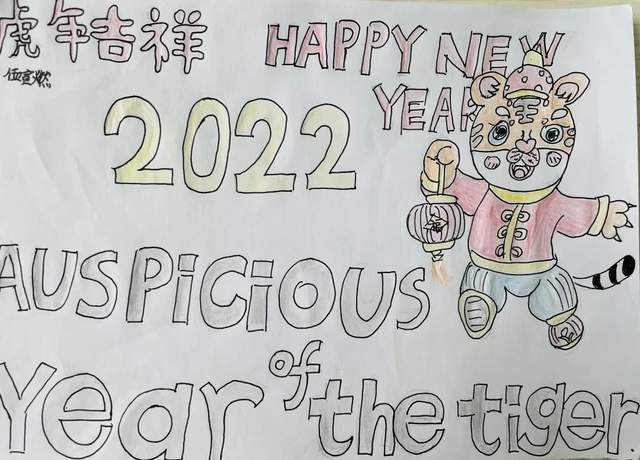 虎年吉祥
HAPPY NEW
YEAR
2022
AUSPiCiOUS
Year of the tiger